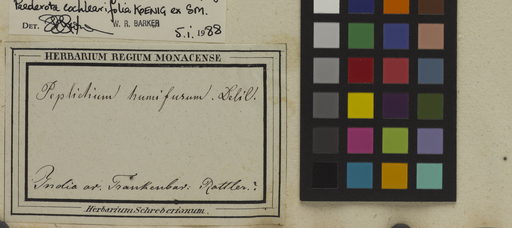 Paederota cochlearifolia KOENIG ex SM.
DET. W. R. BARKER 5.i.1988
HERBARIUM REGIUM MONACENSE
Peplidium humifusum. Delil.
India or. Trankenbar: Rottler.
Herbarium Schreberianum.